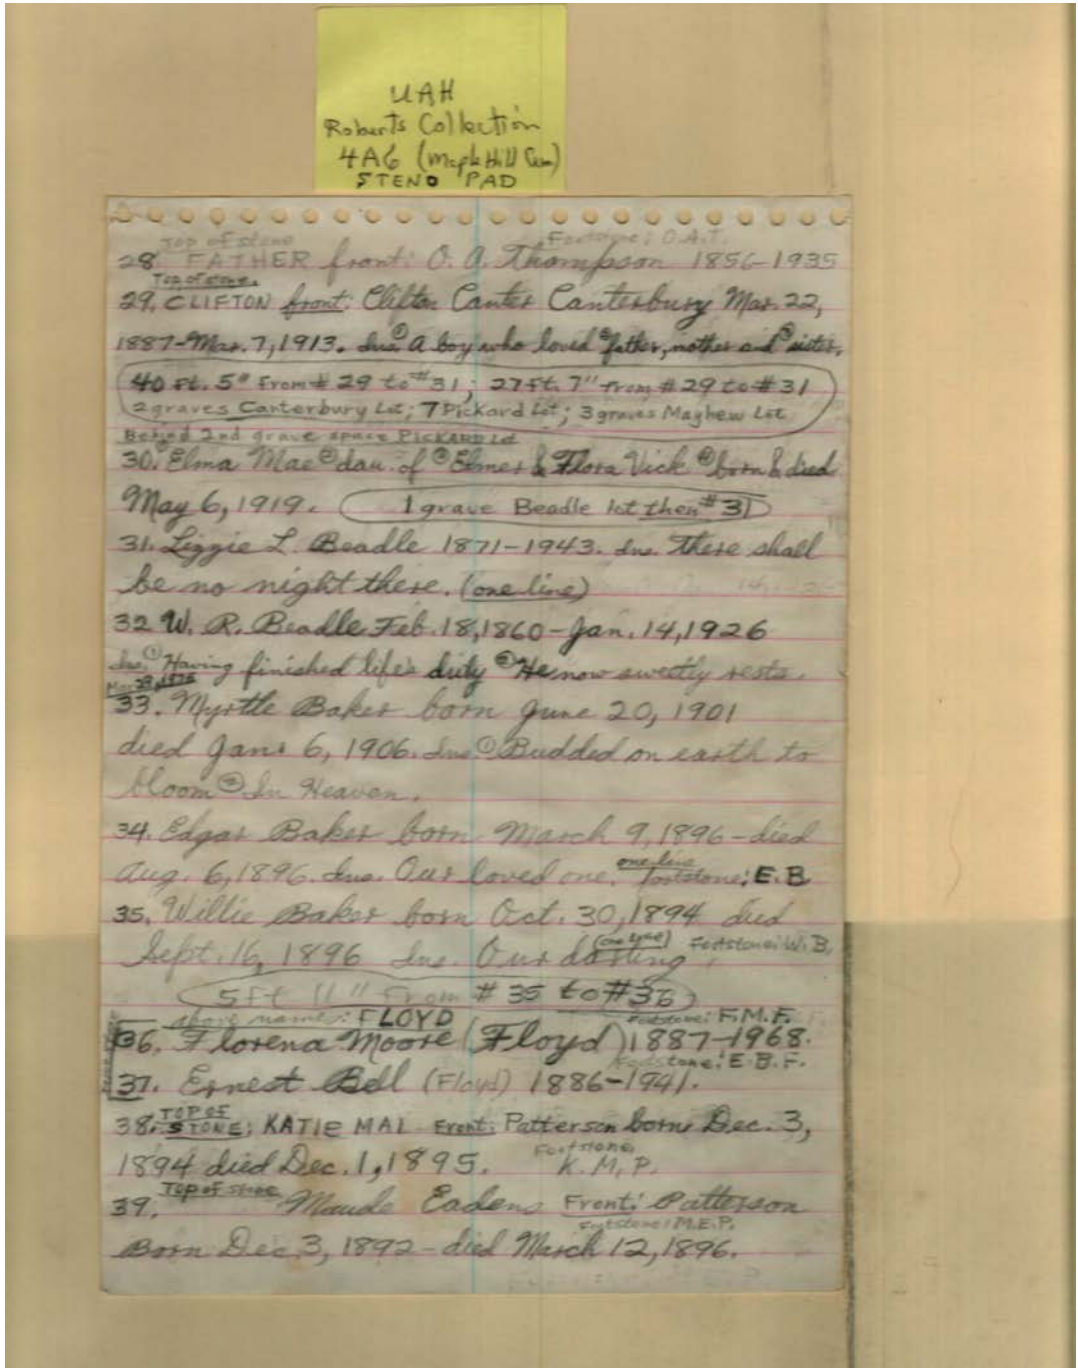 UAH
Roberts Collection
4A6 (Maple Hill Cem)
STENO PAD
Top of stone Footstone: O.A.T.
28. FATHER front: O. A. Thompson 1856-1935
Top of stone.
29. CLIFTON front: Clifton Canter Canterbury Mar. 22,
1887-Mar. 7, 1913. Ins. ① A boy who loved ② father, mother and ③ sister.
40 ft. 5" From # 29 to #31; 27 ft. 7" from # 29 to # 31
2 graves Canterbury Lot; 7 Pickard Lot; 3 graves Mayhew Lot
Behind 2nd grave space PICKARD Lot
30. Elma Mae ② dau. of ③ Elmer & Flora Vick ④ born & died
May 6, 1919. 1 grave Beadle lot then # 31
31. Lizzie L. Beadle 1871-1943. Ins. There shall
be no night there. (one line)
32 W. R. Beadle Feb. 18, 1860-Jan. 14, 1926
Ins. ① Having finished life's duty ② He now sweetly rests.
33. Myrtle Baker born June 20, 1901
died Jan. 6, 1906. Ins. ① Budded on earth to
bloom ② In Heaven.
34. Edgar Baker born March 9, 1896-died
Aug. 6, 1896. Ins. Our loved one. one line footstone: E.B
35. Willie Baker born Oct. 30, 1894 died
Sept. 16, 1896 Ins. Our darling. (one line) Footstone: W.B.
5 ft 11" From # 35 to # 36
above name: FLOYD footstone: F.M.F.
36. Florena Moore (Floyd) 1887-1968.
Footstone: E.B.F.
37. Ernest Bell (Floyd) 1886-1941.
38. TOP OF STONE: KATIE MAI Front: Patterson born Dec. 3,
1894 died Dec. 1, 1895. Footstone K.M.P.
39. Top of stone Maude Eadens Front: Patterson
Footstone: M.E.P.
Born Dec 3, 1892-died March 12, 1896.